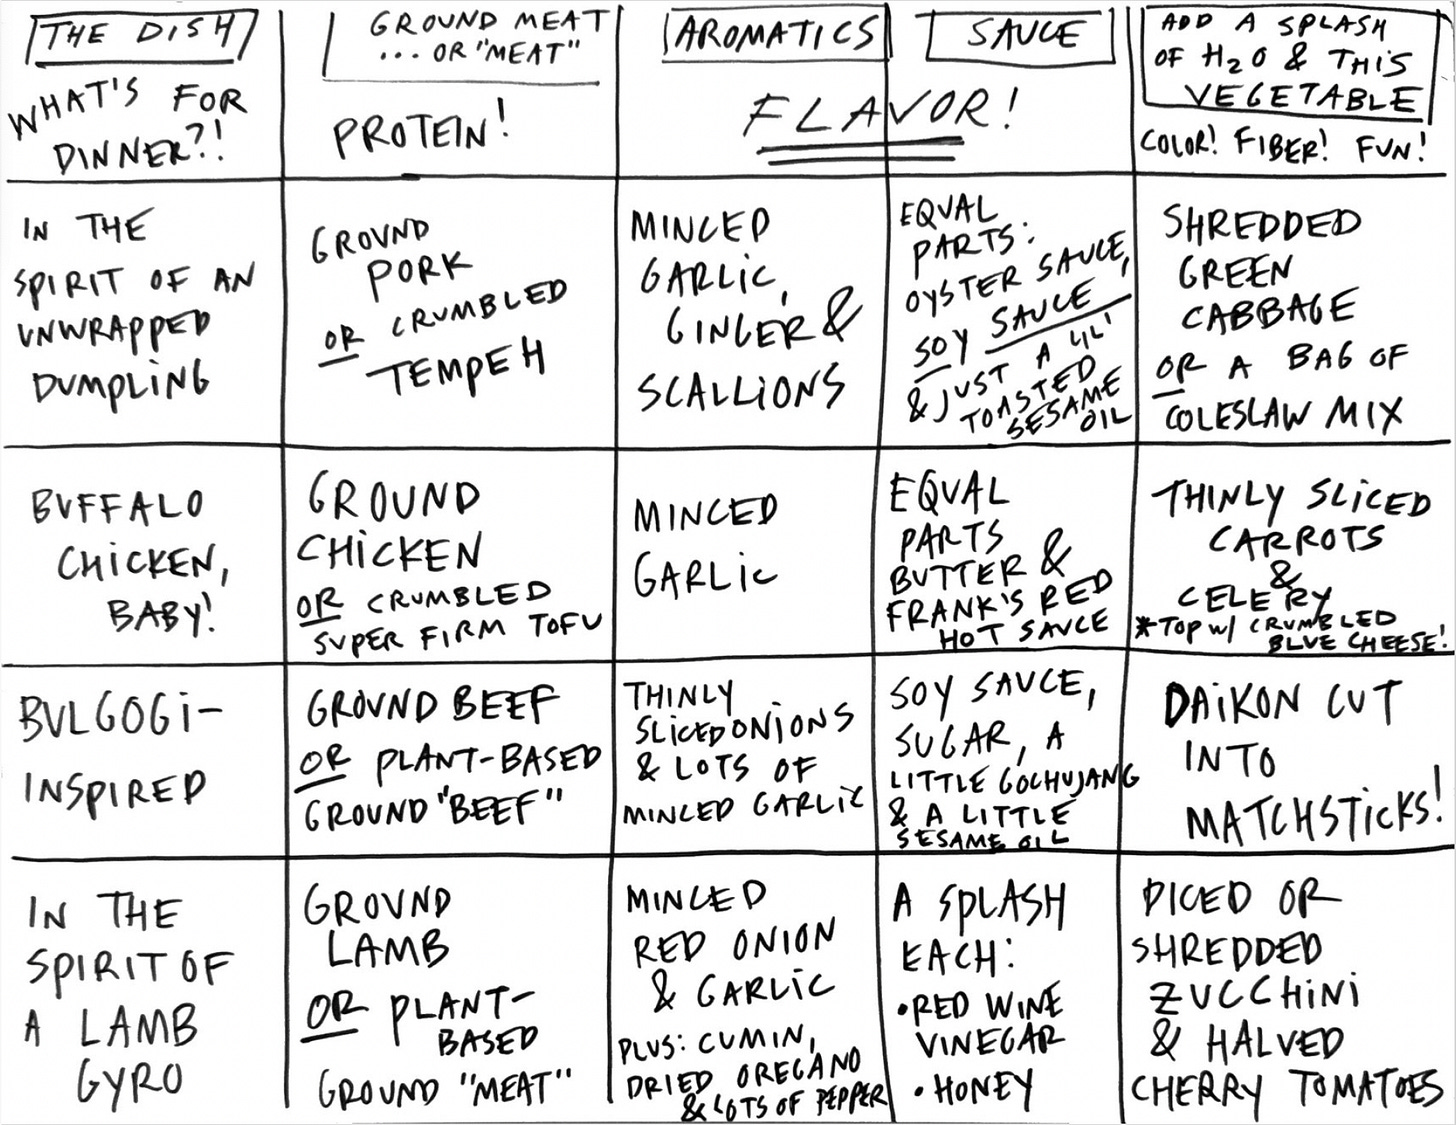 THE DISH
WHAT'S FOR
DINNER?!
GROUND MEAT
... OR "MEAT"
PROTEIN!
AROMATICS
SAUCE
FLAVOR!
ADD A SPLASH
OF H2O & THIS
VEGETABLE
COLOR! FIBER! FUN!
IN THE
SPIRIT OF AN
UNWRAPPED
DUMPLING
GROUND
PORK
OR CRUMBLED
TEMPEH
MINCED
GARLIC,
GINGER &
SCALLIONS
EQUAL
PARTS:
OYSTER SAUCE,
SOY SAUCE
& JUST A LIL'
TOASTED
SESAME
OIL
SHREDDED
GREEN
CABBAGE
OR A BAG OF
COLESLAW MIX
BUFFALO
CHICKEN,
BABY!
GROUND
CHICKEN
OR CRUMBLED
SUPER FIRM TOFU
MINCED
GARLIC
EQUAL
PARTS
BUTTER &
FRANK'S RED
HOT SAUCE
THINLY SLICED
CARROTS
&
CELERY
*TOP W/ CRUMBLED
BLUE CHEESE!
BULGOGI-
INSPIRED
GROUND BEEF
OR PLANT-BASED
GROUND "BEEF"
THINLY
SLICED ONIONS
& LOTS OF
MINCED GARLIC
SOY SAUCE,
SUGAR, A
LITTLE GOCHUJANG
& A LITTLE
SESAME OIL
DAIKON CUT
INTO
MATCHSTICKS!
IN THE
SPIRIT OF
A LAMB
GYRO
GROUND
LAMB
OR PLANT-
BASED
GROUND "MEAT"
MINCED
RED ONION
& GARLIC
PLUS: CUMIN,
DRIED OREGANO
& LOTS OF PEPPER
A SPLASH
EACH:
• RED WINE
VINEGAR
• HONEY
DICED OR
SHREDDED
ZUCCHINI
& HALVED
CHERRY TOMATOES